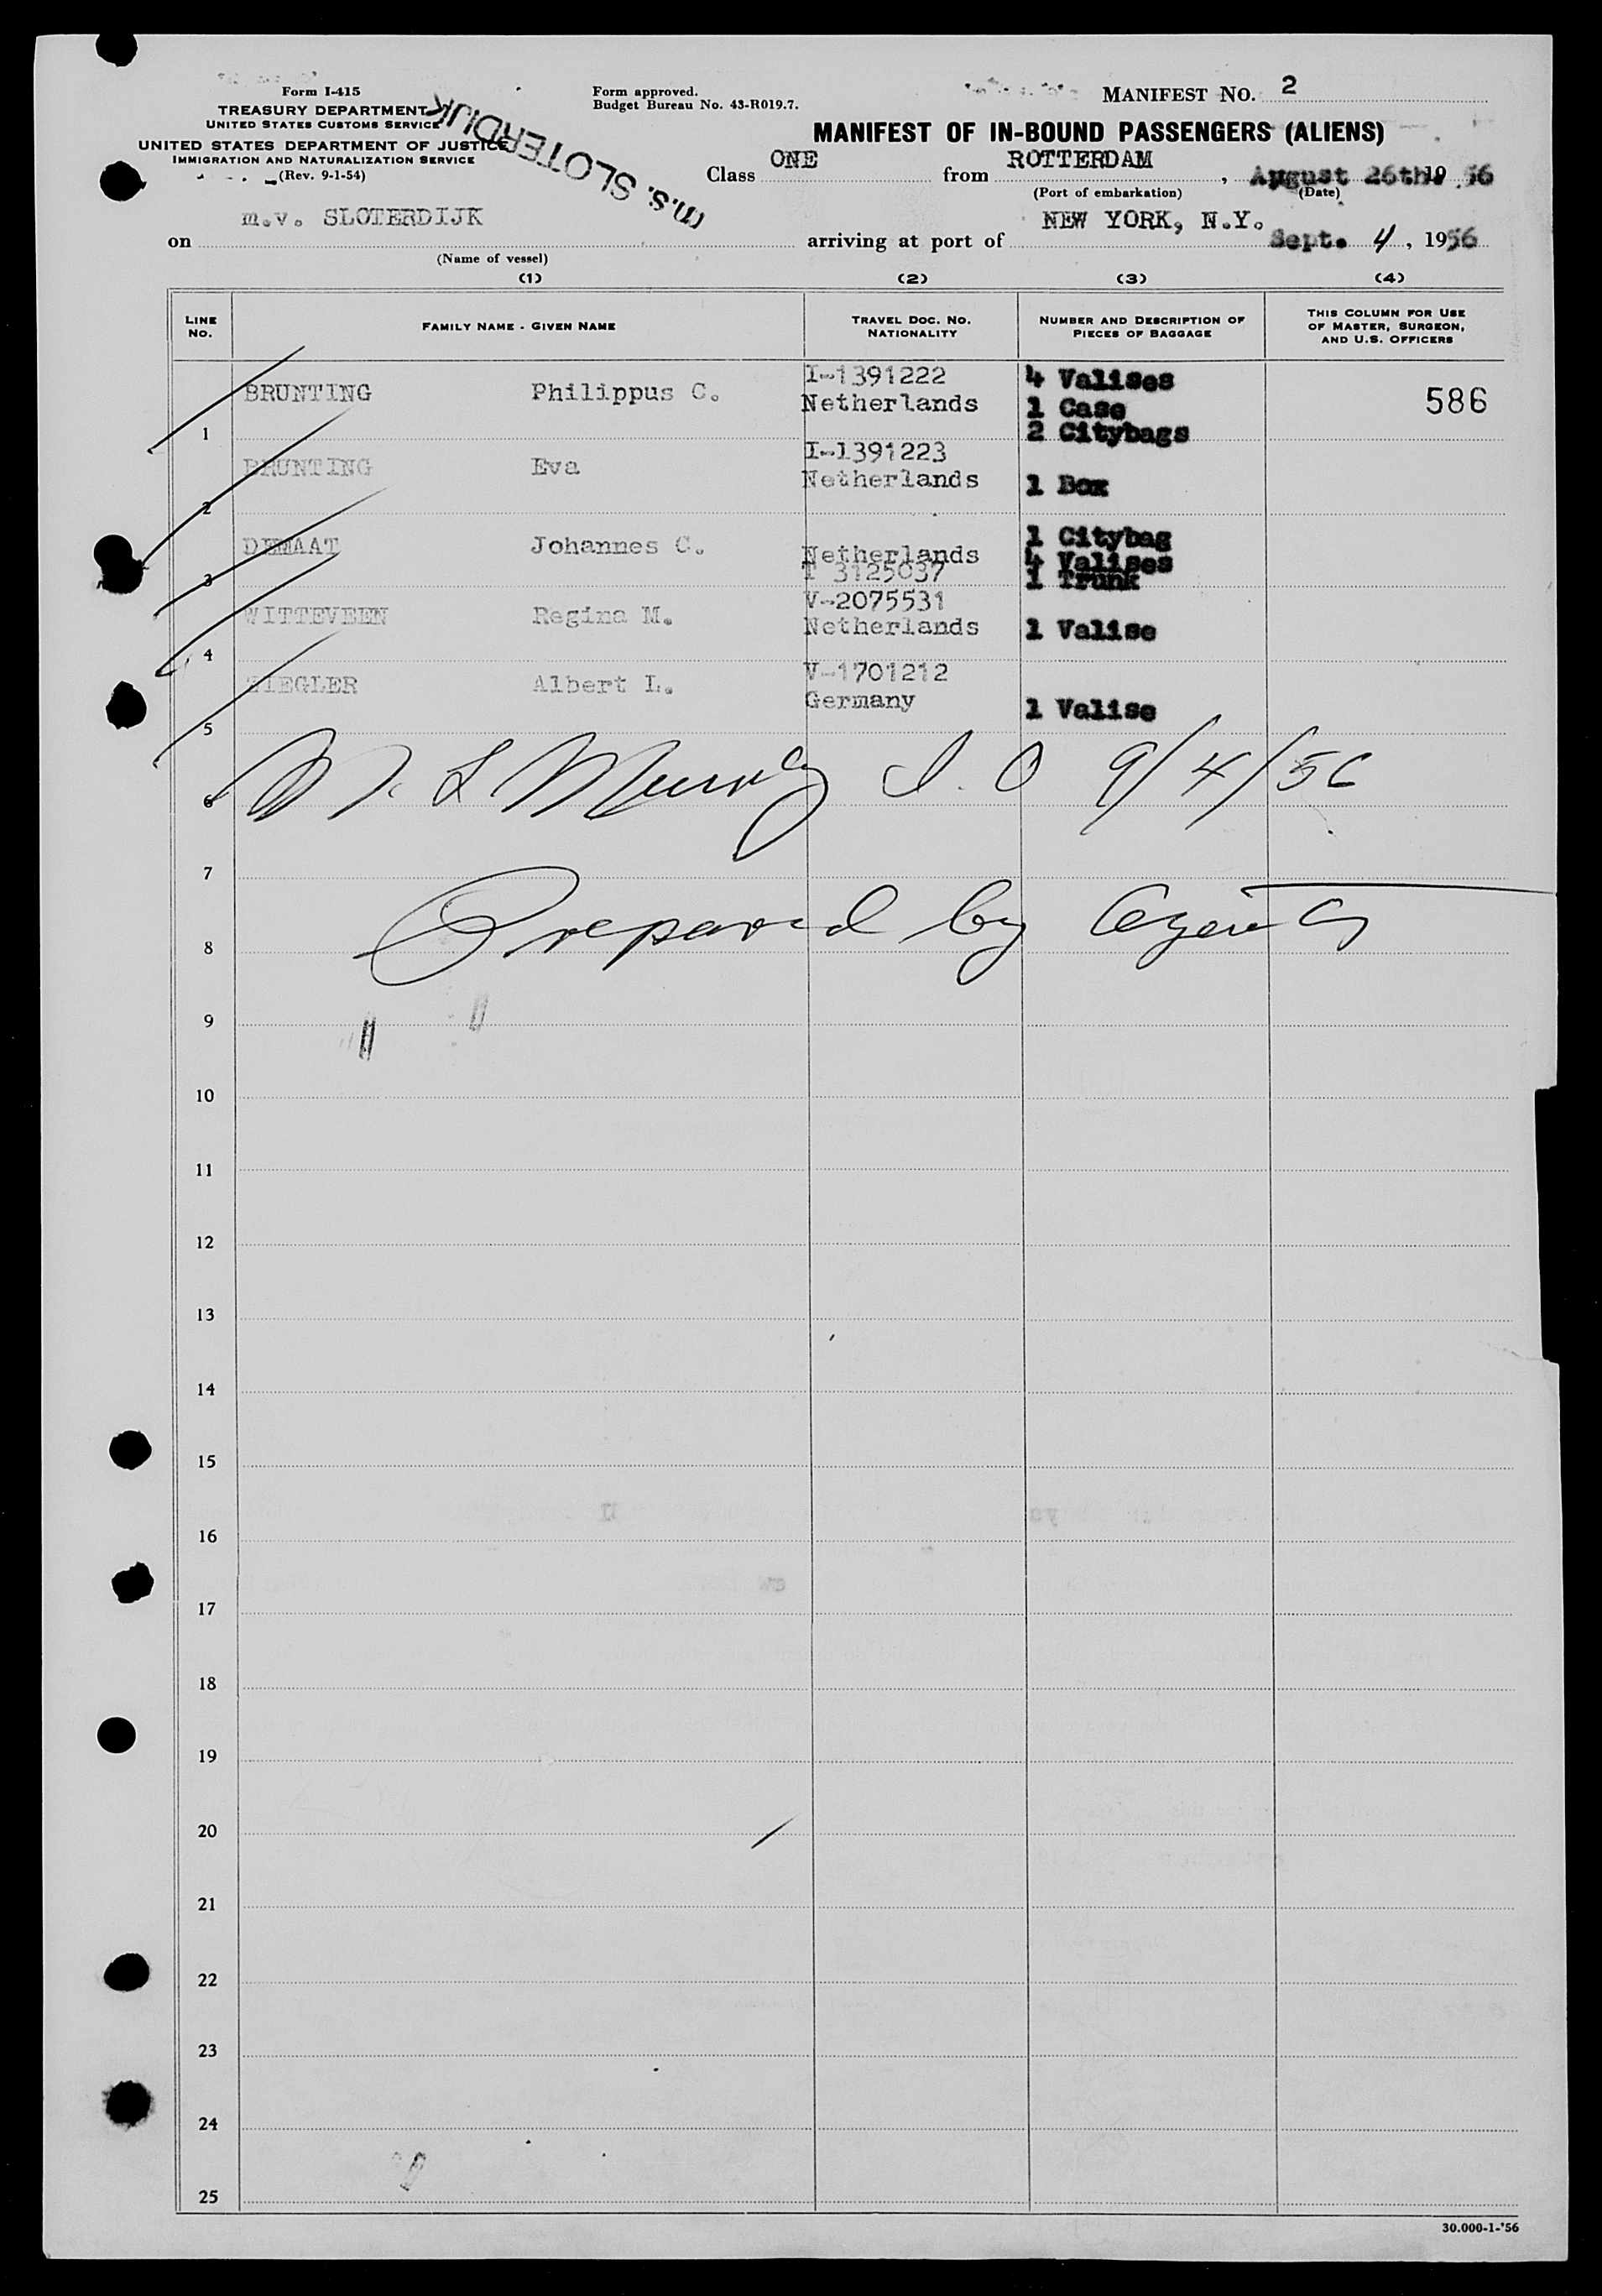 Form I-415
TREASURY DEPARTMENT
UNITED STATES CUSTOMS SERVICE
UNITED STATES DEPARTMENT OF JUSTICE
IMMIGRATION AND NATURALIZATION SERVICE
(Rev. 9-1-54)
Form approved.
Budget Bureau No. 43-R019.7.
m.s. SLOTERDIJK
MANIFEST NO. 2
MANIFEST OF IN-BOUND PASSENGERS (ALIENS)
Class ONE from ROTTERDAM, August 26th 19 56
(Port of embarkation) (Date)
on m.v. SLOTERDIJK arriving at port of NEW YORK, N.Y. Sept. 4, 1956
(Name of vessel)
(1) (2) (3) (4)
LINE NO. FAMILY NAME - GIVEN NAME TRAVEL DOC. NO. NATIONALITY NUMBER AND DESCRIPTION OF PIECES OF BAGGAGE THIS COLUMN FOR USE OF MASTER, SURGEON, AND U.S. OFFICERS
1 BRUNTING Philippus C. I-1391222 Netherlands 4 Valises 1 Case 2 Citybags 586
2 BRUNTING Eva I-1391223 Netherlands 1 Box
3 DEMAAT Johannes C. Netherlands T 3125037 1 Citybag 4 Valises 1 Trunk
4 WITTEVEEN Regina M. V-2075531 Netherlands 1 Valise
5 ZIEGLER Albert L. V-1701212 Germany 1 Valise
6 L Murray I.O 9/4/56
7
8 Prepared by Agents
9
10
11
12
13
14
15
16
17
18
19
20
21
22
23
24
25
30.000-1-'56